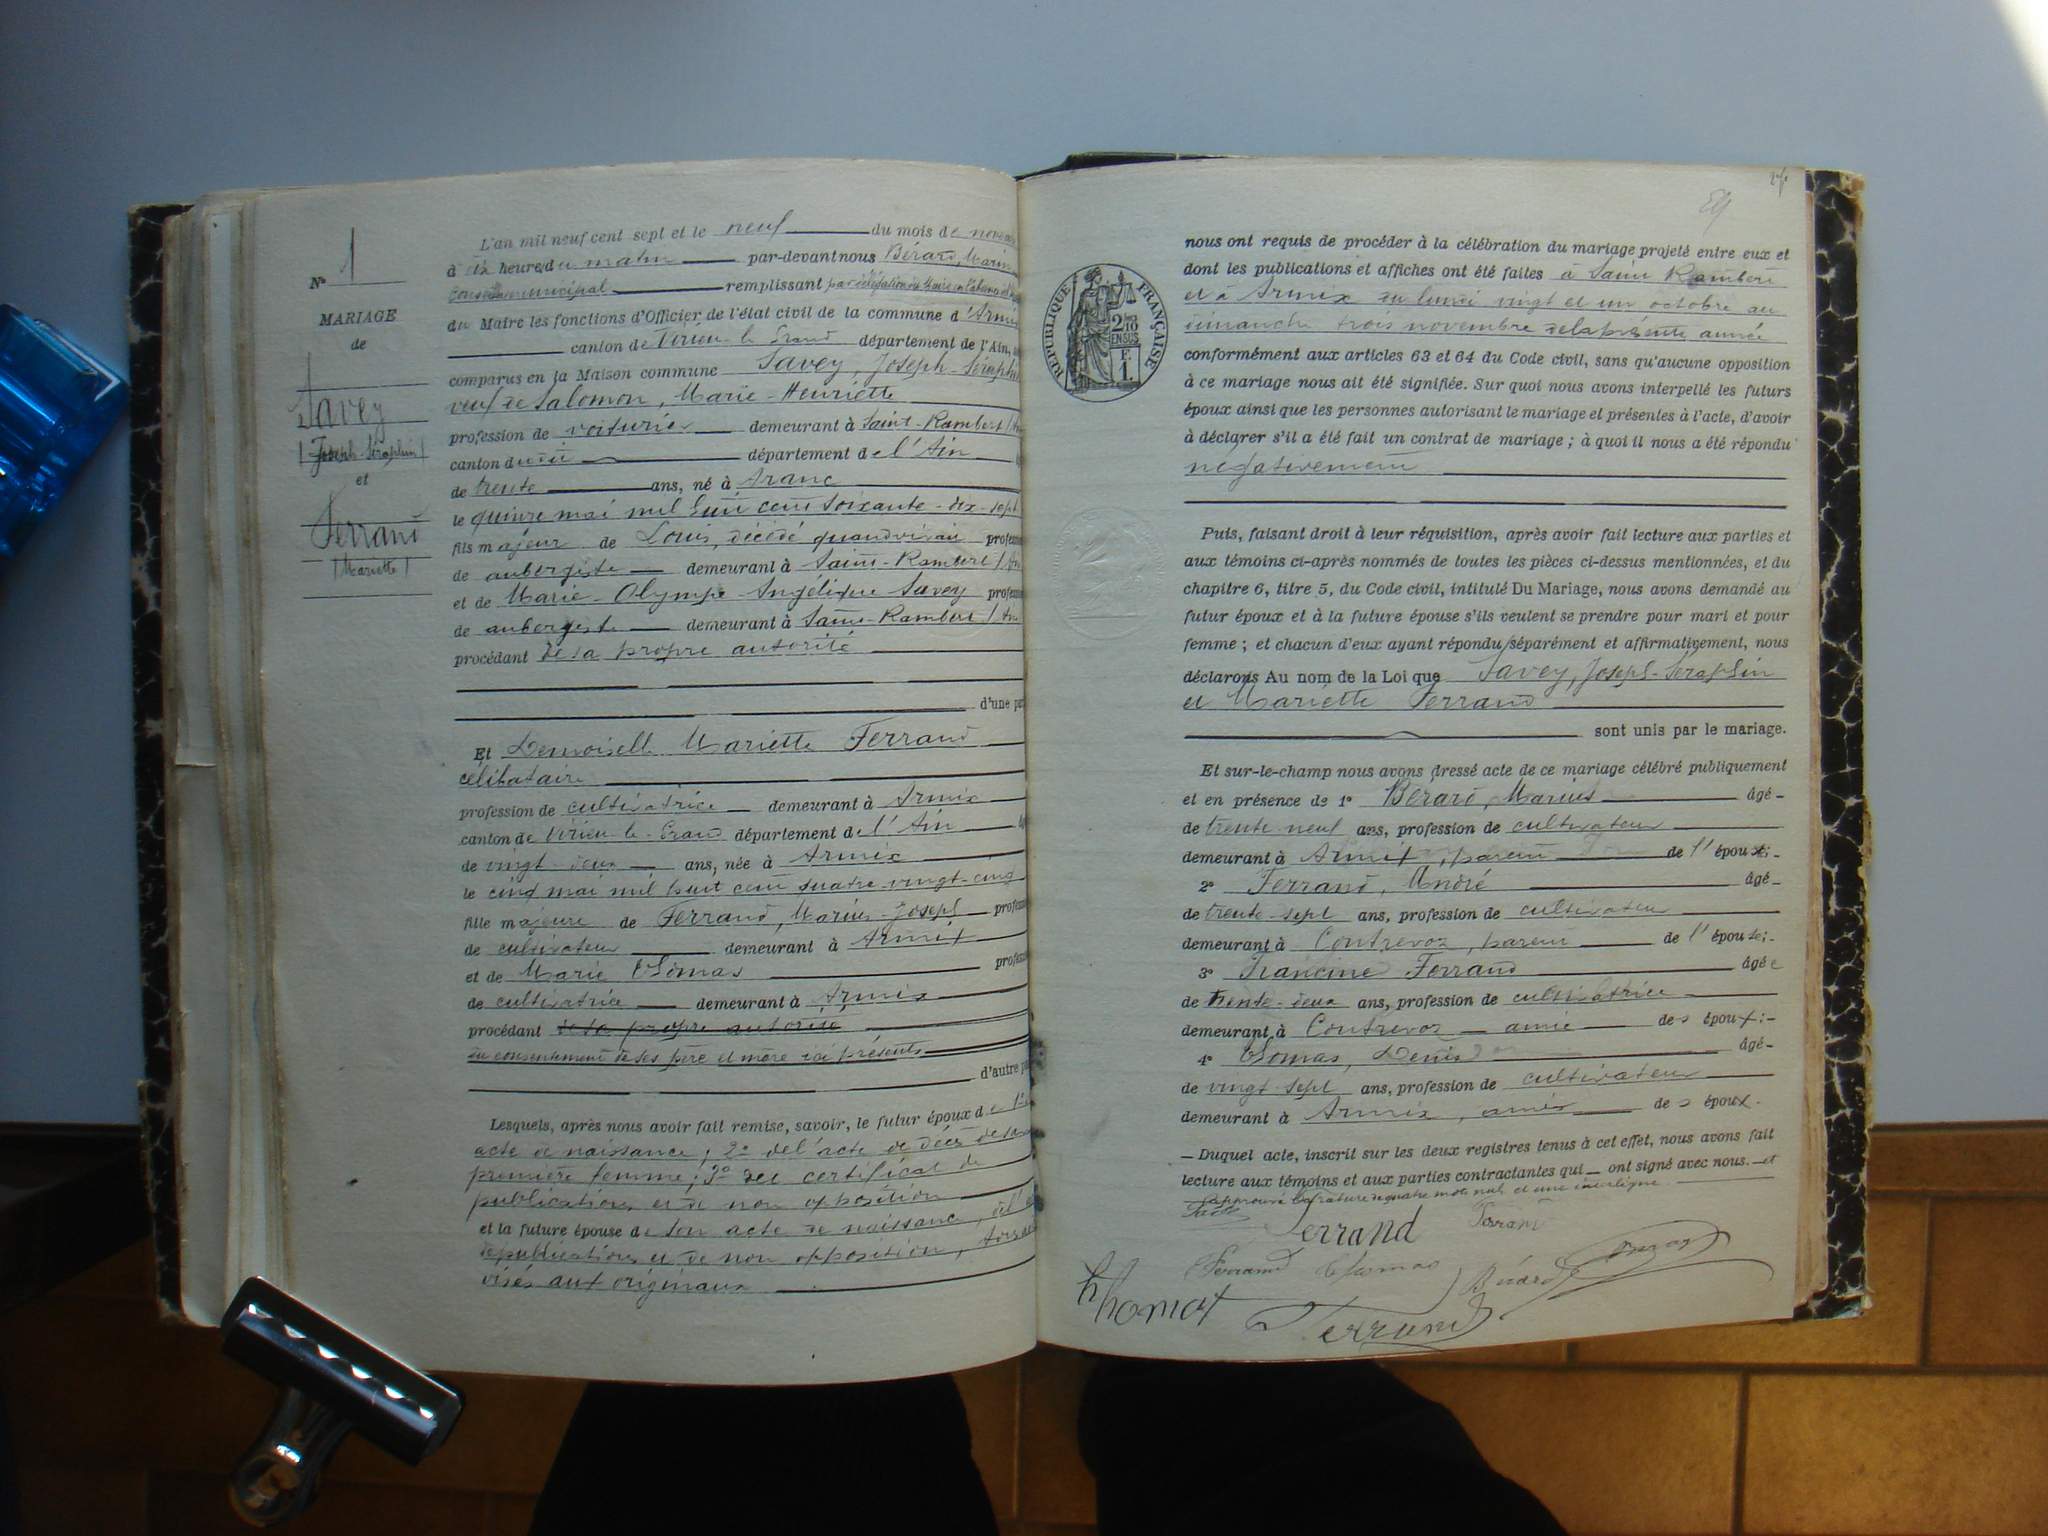 L'an mil neuf cent sept et le neuf du mois de
à dix heures du matin par-devant nous Bérard, Marius
Conseiller municipal remplissant par délégation du Maire en
du Maire les fonctions d'Officier de l'état civil de la commune d'Armix
canton de Virieu-le-Grand département de l'Ain,
comparus en la Maison commune Savey, Joseph-Séraphin
veuf de Salomon, Marie-Henriette
profession de voiturier demeurant à Saint-Rambert
canton dudit département de l'Ain
de trente ans, né à Aranc
le quinze mai mil huit cent soixante-dix-sept
fils majeur de Louis, décédé quand vivait
de aubergiste demeurant à Saint-Rambert
et de Marie-Olympe-Angélique Savey
de aubergiste demeurant à Saint-Rambert
procédant de sa propre autorité
d'une
Et Demoiselle Mariette Ferrand
célibataire
profession de cultivatrice demeurant à Armix
canton de Virieu-le-Grand département de l'Ain
de vingt-deux ans, née à Armix
le cinq mai mil huit cent quatre-vingt-cinq
fille majeure de Ferrand, Marius-Joseph
de cultivateur demeurant à Armix
et de Marie Thomas
de cultivatrice demeurant à Armix
procédant de sa propre autorité
du consentement de ses père et mère ici présents
d'autre
Lesquels, après nous avoir fait remise, savoir, le futur époux de 1°
acte de naissance; 2° de l'acte de décès de sa
première femme; 3° du certificat de
publication et de non opposition
et la future épouse de son acte de naissance,
de publication et de non opposition,
visés aux originaux
N° 1
MARIAGE
de
Savey
(Joseph-Séraphin)
et
Ferrand
(Mariette)
RÉPUBLIQUE FRANÇAISE
2/10
EN SUS
F.
1.
nous ont requis de procéder à la célébration du mariage projeté entre eux et
dont les publications et affiches ont été faites à Saint Rambert
et à Armix du lundi vingt et un octobre au
dimanche trois novembre de la présente année
conformément aux articles 63 et 64 du Code civil, sans qu'aucune opposition
à ce mariage nous ait été signifiée. Sur quoi nous avons interpellé les futurs
époux ainsi que les personnes autorisant le mariage et présentes à l'acte, d'avoir
à déclarer s'il a été fait un contrat de mariage; à quoi il nous a été répondu
négativement
Puis, faisant droit à leur réquisition, après avoir fait lecture aux parties et
aux témoins ci-après nommés de toutes les pièces ci-dessus mentionnées, et du
chapitre 6, titre 5, du Code civil, intitulé Du Mariage, nous avons demandé au
futur époux et à la future épouse s'ils veulent se prendre pour mari et pour
femme; et chacun d'eux ayant répondu séparément et affirmativement, nous
déclarons Au nom de la Loi que Savey, Joseph-Séraphin
et Mariette Ferrand
sont unis par le mariage.
Et sur-le-champ nous avons dressé acte de ce mariage célébré publiquement
et en présence de 1° Bérard, Marius âgé
de trente-neuf ans, profession de cultivateur
demeurant à Armix, parent de l'épouse;
2° Ferrand, André âgé
de trente-sept ans, profession de cultivateur
demeurant à Contrevoz, parent de l'épouse;
3° Francine Ferrand âgée
de trente-deux ans, profession de cultivatrice
demeurant à Contrevoz amie des époux;
4° Thomas, Denis âgé
de vingt-sept ans, profession de cultivateur
demeurant à Armix, amis des époux.
Duquel acte, inscrit sur les deux registres tenus à cet effet, nous avons fait
lecture aux témoins et aux parties contractantes qui ont signé avec nous. et
approuvé la rature de quatre mots nuls et une interligne.
Ferrand Ferrand
Ferrand Thomas Bérard
Thomas Ferrand